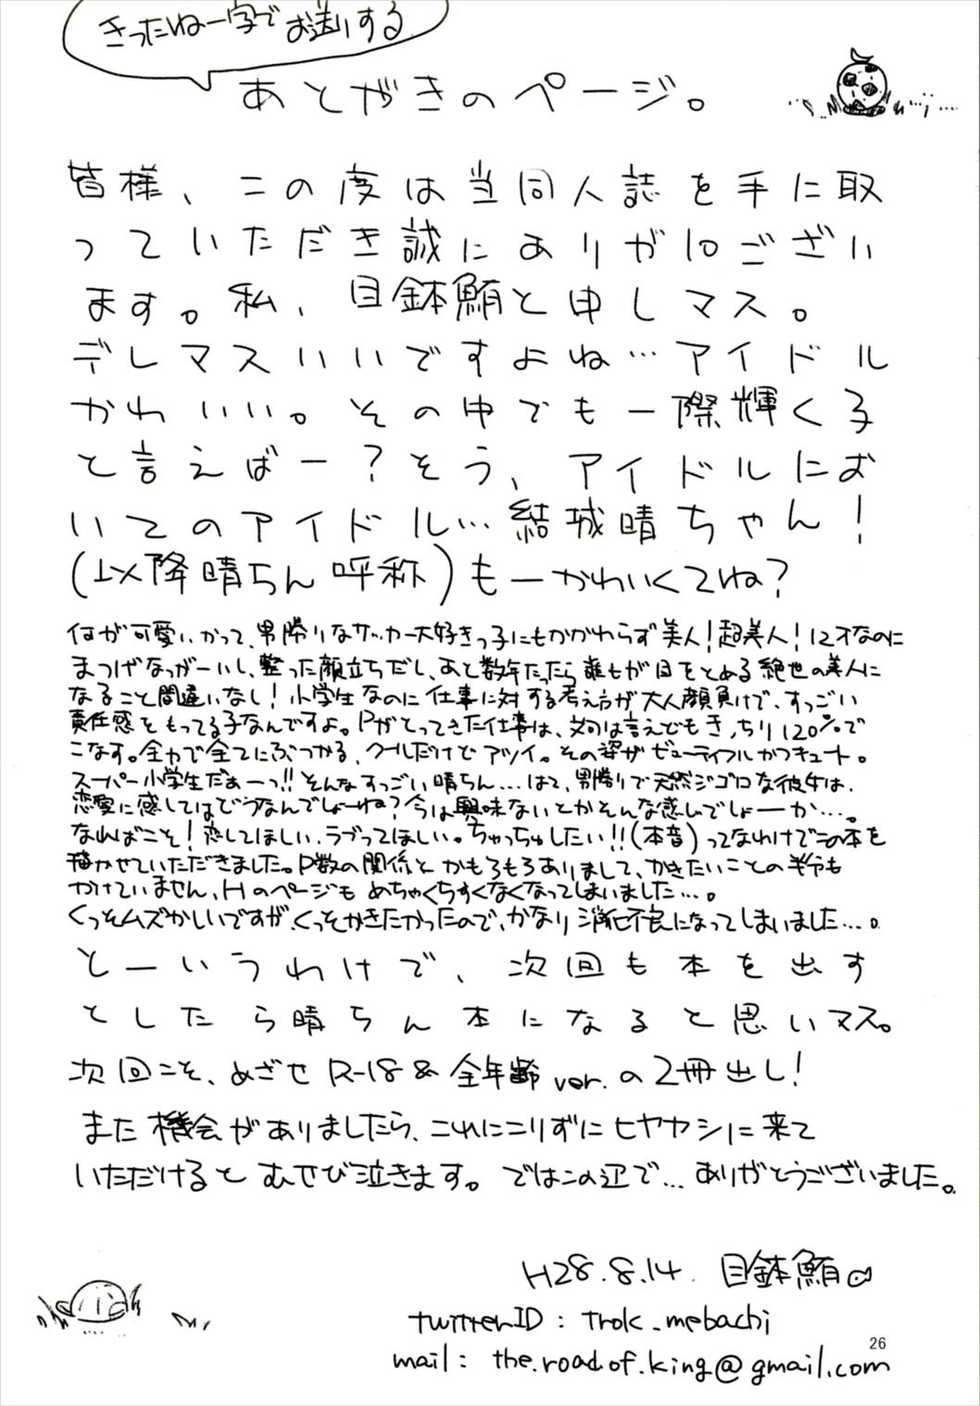 きったねー字でお送りする
あとがきのページ。
皆様、この度は当同人誌を手に取
っていただき誠にありがとございい
ます。私、目鉢鮪と申しマス。
デレマスいいですよね…アイドル
かわいい。その中でも一際輝く子
と言えばー?そう、アイドルにお
いてのアイドル…結城晴ちゃん!
(以降晴ちん呼称)もーかわいくてね?
何が可愛いかって、男勝りなサッカー大好きっ子にもかかわらず美人!超美人!12才なのに
まつげなっがーいし、整った顔立ちだし、あと数年たったら誰もが目をとめる絶世の美人に
なること間違いなし!小学生なのに仕事に対する考え方が大人顔負けで、すっごい
責任感をもってる子なんですよ。Pがとってきた仕事は、文句は言えどもきっちり120%で
こなす。全力で全てにぶつかる、クールだけどアツイ。その姿がビューティフルかつキュート。
スーパー小学生だぁーっ!!そんなすっごい晴ちん…はて、男勝りで天然ジゴロな彼女は、
恋愛に感してはどうなんでしょーね?今は興味ないとかそんな感じでしょーか…。
なればこそ!恋してほしい、ラブってほしい。ちゃっちゅしたい!!(本音)ってなわけでこの本を
描かせていただきました。P数の関係とかもろもろありまして、かきたいことの半分も
かけていません、Hのページもめちゃくちゃすくなくなってしまいました…。
くっそムズかしいですが、くっそかきたかったので、かなり消化不良になってしまいました…。
とーいうわけで、次回も本を出す
としたら晴ちん本になると思いマス。
次回こそ、めざせR-18&全年齢ver.の2冊出し!
また機会がありましたら、これにこりずにヒヤカシに来て
いただけるとむせび泣きます。ではこの辺で…ありがとうございました。
H28.8.14. 目鉢鮪
twitterID: trok_mebachi
26
mail: the.road.of.king@gmail.com